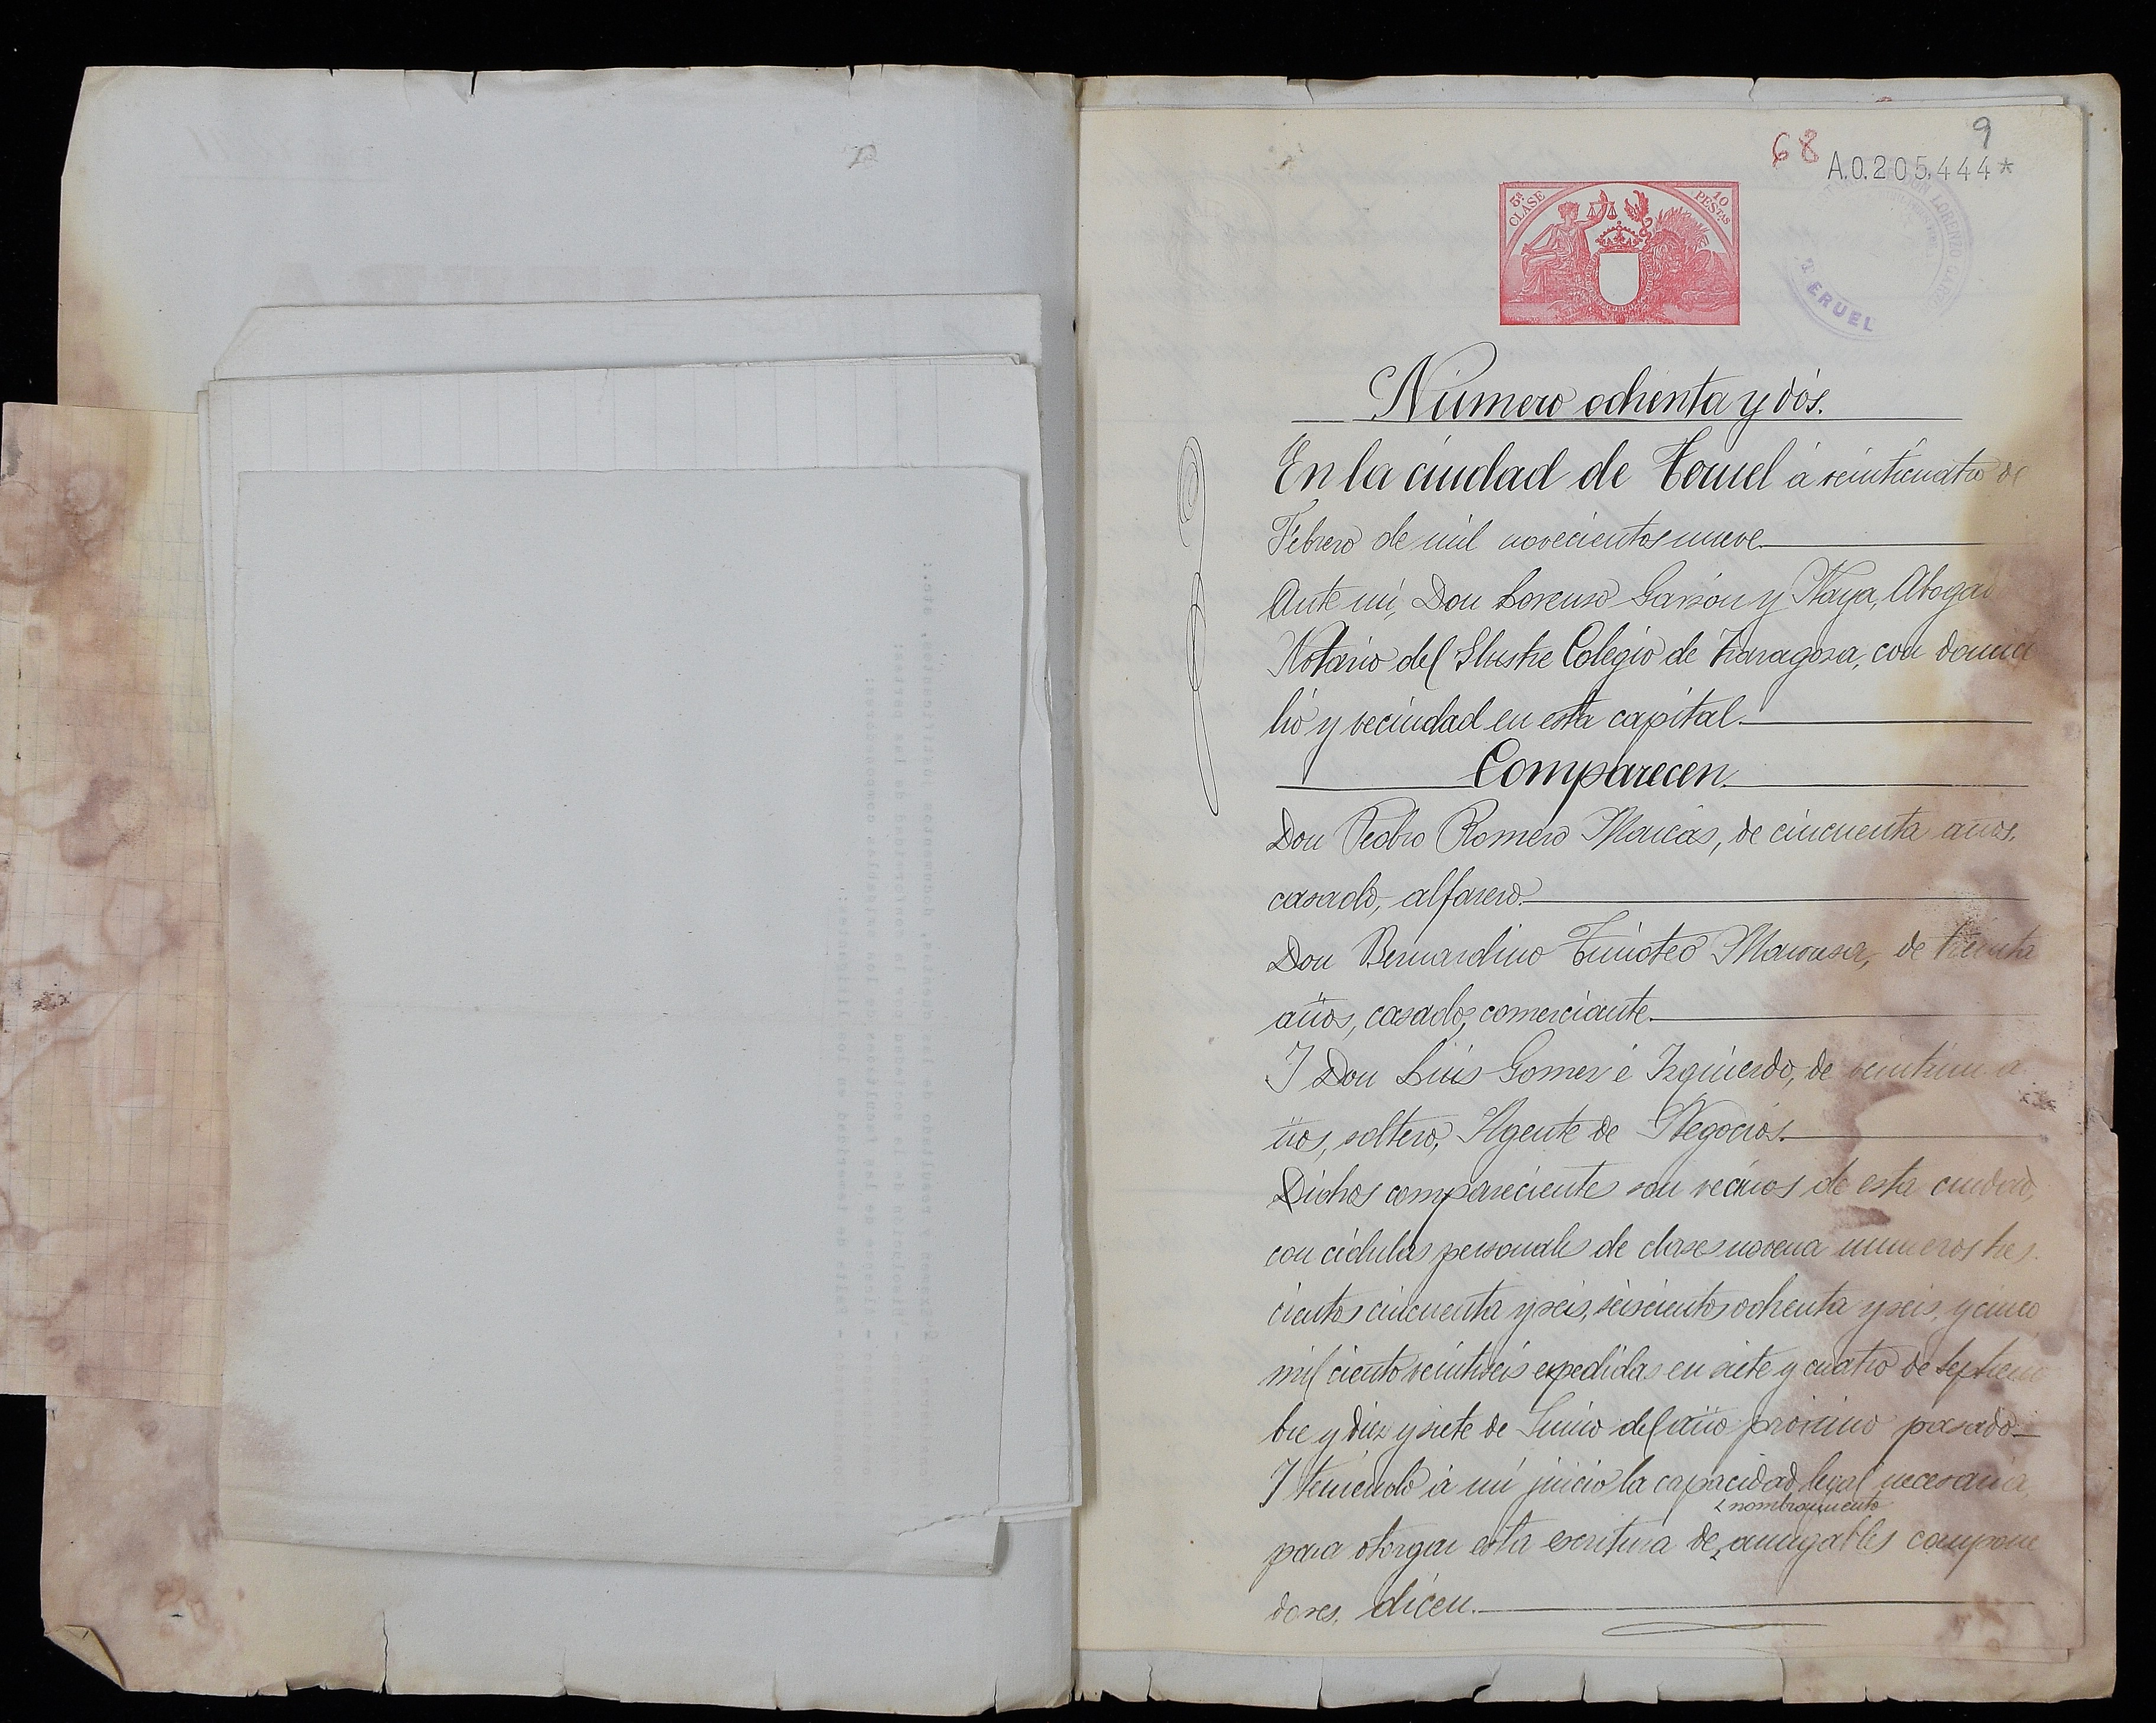 68
9
A.0.205.444*
5ª CLASE
10 PESTAS
DON LORENZO GARZ
TERUEL
Número ochenta y dós.
En la ciudad de Teruel á veinticuatro de
Febrero de mil novecientos nueve.
Ante mí, Don Lorenzo Garzón y Naya, Abogad
Notario del Ilustre Colegio de Zaragoza, con domici
lio y vecindad en esta capital.
Comparecen.
Don Pedro Romero Macias, de cincuenta años,
casado, alfarero.
Don Bernardino Timoteo de treinta
años, casado, comerciante.
Y Don Luis Gomez é Izquierdo, de veintiun a
ños, soltero, Agente de Negocios.
Dichos comparecientes son vecinos de esta ciudad,
con cédulas personales de clase novena numeros tres
cientos cincuenta y seis, seiscientos ochenta y seis, y cinco
mil ciento veintiseis expedidas en siete y cuatro de Septiem
bre y diez y siete de Junio del año próximo pasado.
Y teniendo á mi juicio la capacidad legal necesaria
nombramiento
para otorgar esta escritura de amigables compone
dores, dicen.